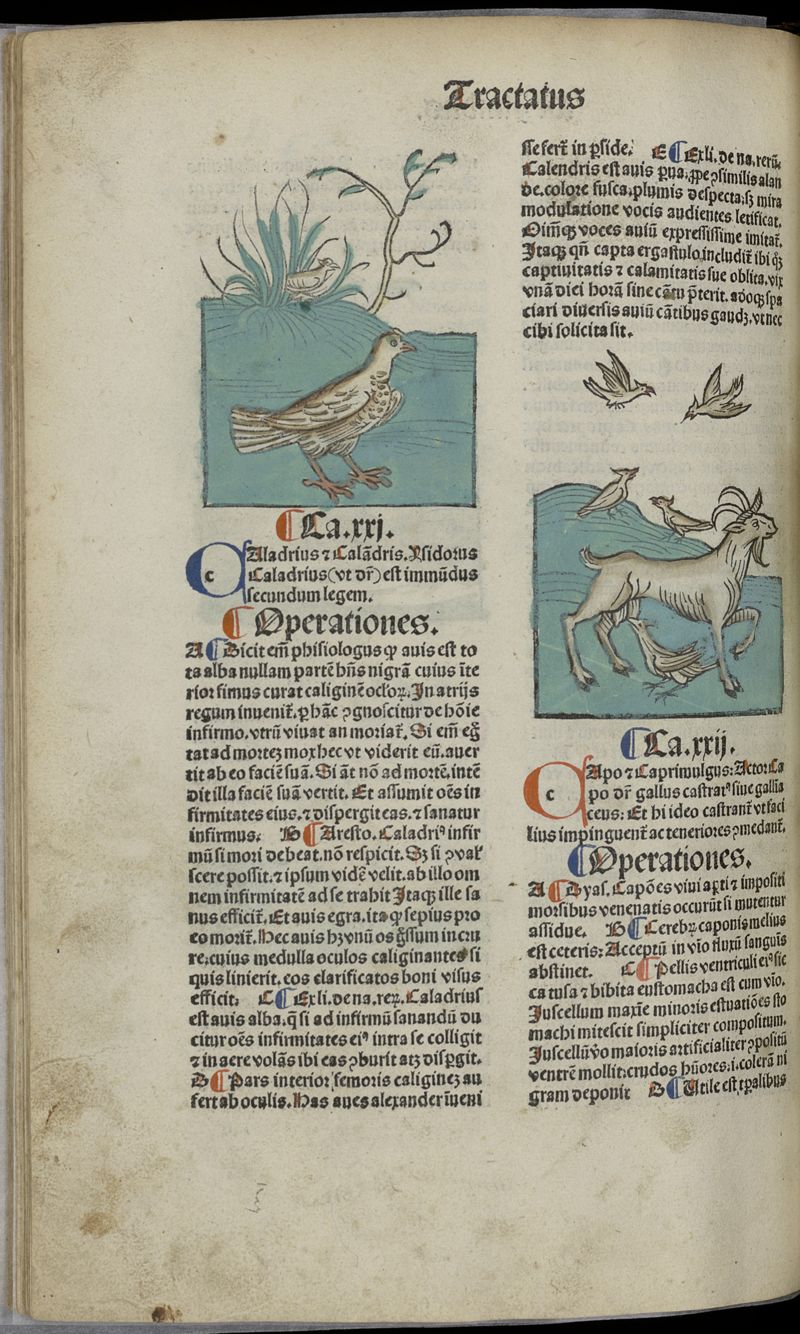 Tractatus
Ca.xxj.
CAladrius ⁊ Calādris. Ysidorus
Caladrius (vt dr̄) est immūdus
secundum legem.
Operationes.
A ¶ Dicit em̄ phisiologus ꝙ auis est to
ta alba nullam partē hn̄s nigrā cuius īte
rior fimus curat caliginē ocl'oꝝ. In atrijs
regum inuenit᷑. ꝑ hāc ꝓgnoscitur de hōie
infirmo. vtrū viuat an moriat᷑. Si em̄ eḡ
tat ad mortez mox hec vt viderit eū. auer
tit ab eo faciē suā. Si āt nō ad mortē. intē
dit illa faciē suā vertit. Et assumit oēs in
firmitates eius. ⁊ dispergit eas. ⁊ sanatur
infirmus. B ¶ Aresto. Caladriꝰ infir
mū si mori debeat. nō respicit. Sꝫ si ꝯual'
scere possit. ⁊ ipsum vidē velit. ab illo om
nem infirmitatē ad se trahit Itaqꝫ ille sa
nus efficit᷑. Et auis egra. ita ꝙ sepius pro
eo morit᷑. Hec auis hꝫ vnū os gͦssum in cru
re: cuius medulla oculos caliginantes si
quis linierit. eos clarificatos boni visus
efficit. C ¶ Ex li. de na. reꝝ. Caladrius
est auis alba. q̄ si ad infirmū sanandū du
citur oēs infirmitates eiꝰ intra se colligit
⁊ in aere volās ibi eas ꝯburit atꝫ disꝑgit.
D ¶ Pars interior femoris caliginez au
fert ab oculis. Has aues alexander īueni
sse fert᷑ in ꝑside. E ¶ Ex li. de na. rerū.
Calendris est auis ꝑua. ꝓpe ꝯsimilis alau
de. colore fusca. plumis despecta. sꝫ mira
modulatione vocis audientes letificat.
Oim̄qꝫ voces auiū expressissime imitat᷑.
Itaqꝫ qn̄ capta ergastulo includit᷑ ibi qͥꝫ
captiuitatis ⁊ calamitatis sue oblita. vix
vnā diei horā sine cātu p̄terit. adoqꝫ spa
ciari diuersis auiū cātibus gaudꝫ. vt nec
cibi solicita sit.
Ca.xxij.
CApo ⁊ Caprimulgus: Actor Ca
po dr̄ gallus castratꝰ siue gallia
ceus: Et hi ideo castrant᷑ vt faci
lius impinguent᷑ ac teneriores ꝯmedant᷑.
Operationes.
A ¶ Dyas. Capōes viui aꝑti ⁊ impositi
morsibus venenatis occurūt si mutentur
assidue. B ¶ Cerebꝝ caponis melius
est ceteris: Acceptū in vīo fluxū sanguīs
abstinet. C ¶ Pellis ventriculi eiꝰ sic
ca tusa ⁊ bibita eustomacha est cum vīo.
Iuscellum maxīe minoris estuatiōes sto
machi mitescit simpliciter compositum.
Iuscellū v̊o maioris artificialiter ꝯpositū
ventrē mollit: crudos hūores. i. colerā ni
gram deponit D ¶ Utile est tꝑalibus